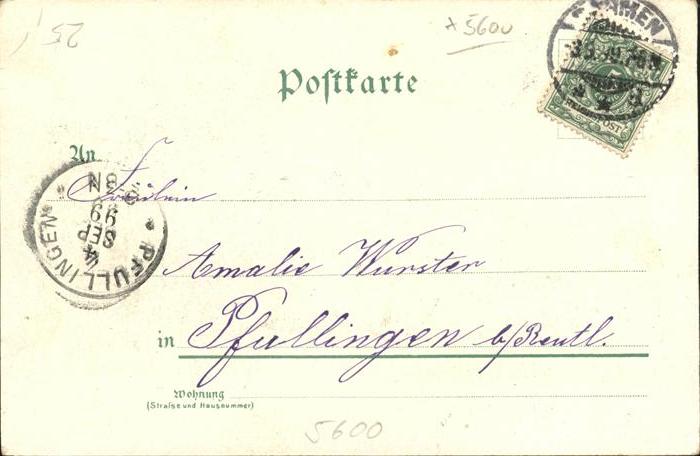 25
x 5600
Postkarte
An
Fräulein
Amalie Wurster
in Pfullingen b/Reutl.
Wohnung
(Strafse und Hausnummer)
5600
PFULLINGEN
SEP
99
8-9N